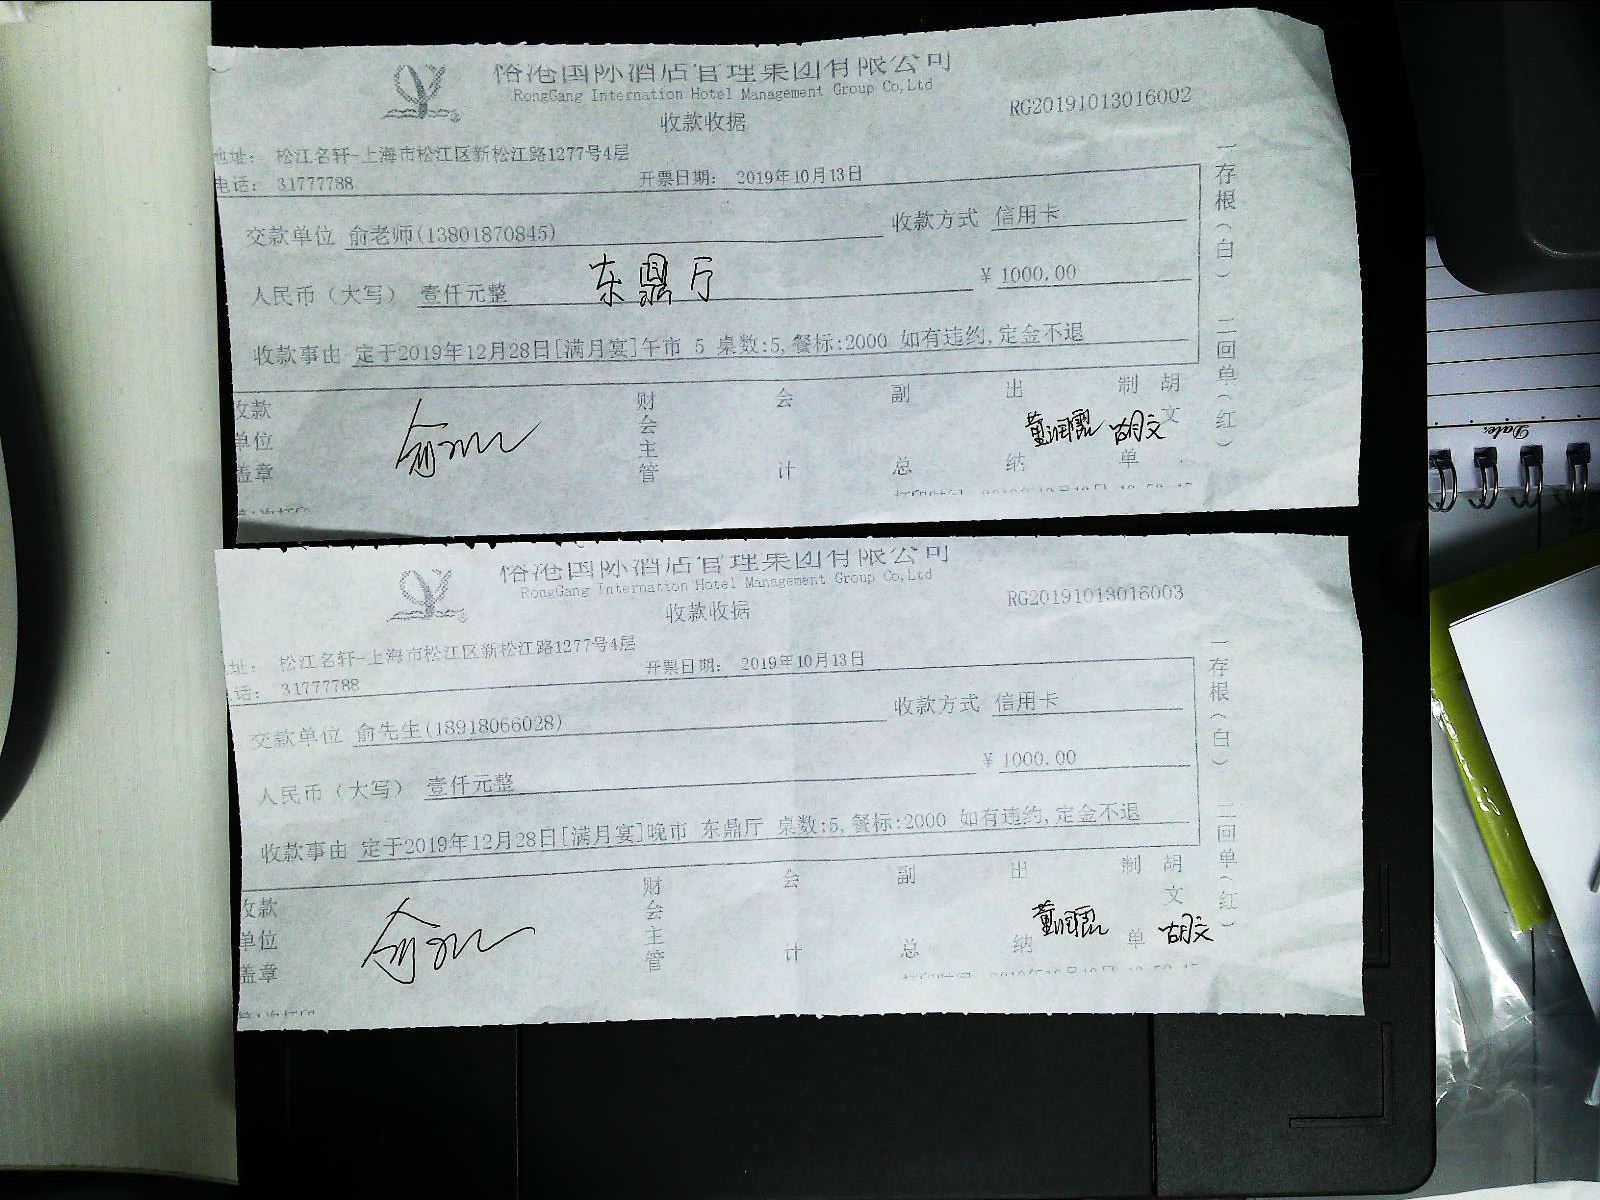 国际酒店管理集团有限公司
RongGang Internation Hotel Management Group Co,Ltd
收款收据
RG20191013016002
地址: 松江名轩-上海市松江区新松江路1277号4层
电话: 31777788
开票日期: 2019年10月13日
交款单位 俞老师(13801870845)
收款方式 信用卡
人民币(大写) 壹仟元整
东鼎厅
¥ 1000.00
收款事由 定于2019年12月28日[满月宴]午市 5 桌数:5,餐标:2000 如有违约,定金不退
收款单位盖章
俞
财会主管
会计
副总
出纳
制单
胡文
董润霞 胡文
一存根(白) 二回单(红)
国际酒店管理集团有限公司
RongGang Internation Hotel Management Group Co,Ltd
收款收据
RG20191013016003
地址: 松江名轩-上海市松江区新松江路1277号4层
电话: 31777788
开票日期: 2019年10月13日
交款单位 俞先生(18918066028)
收款方式 信用卡
人民币(大写) 壹仟元整
¥ 1000.00
收款事由 定于2019年12月28日[满月宴]晚市 东鼎厅 桌数:5,餐标:2000 如有违约,定金不退
收款单位盖章
俞
财会主管
会计
副总
出纳
制单
胡文
董润霞 胡文
一存根(白) 二回单(红)
Date: